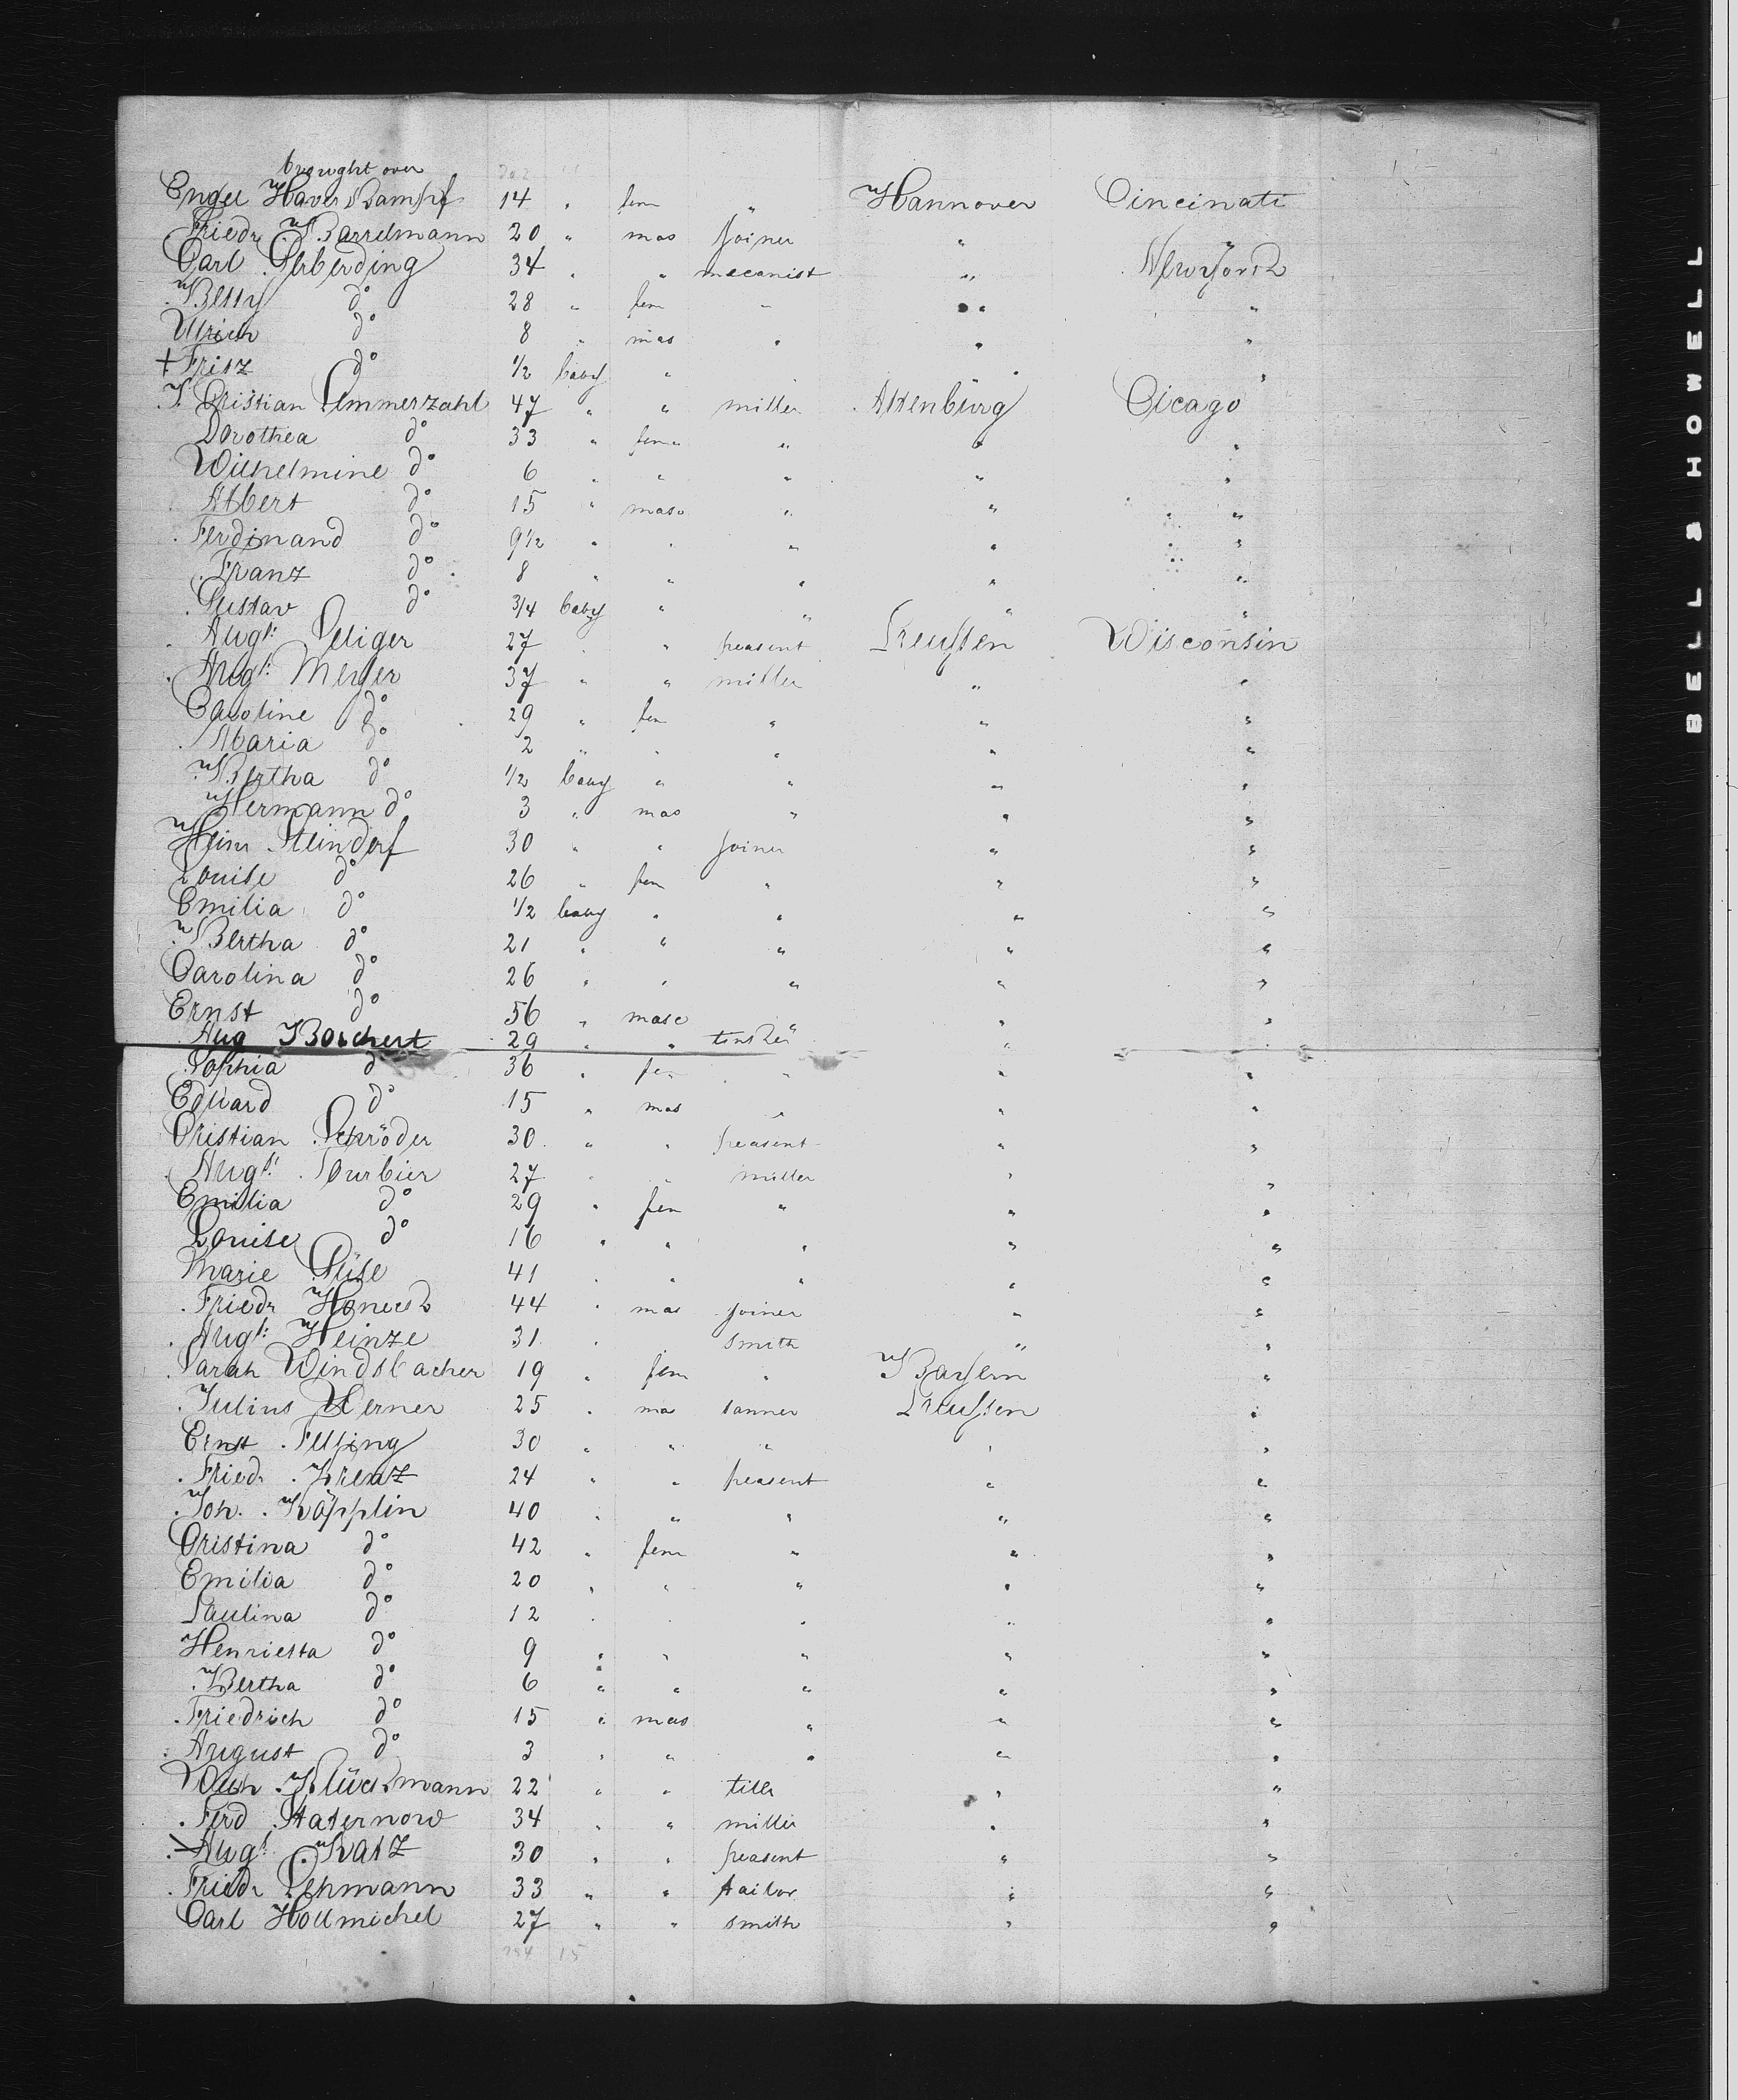 brought over
Engel Haverkampf 14 " fem " Hannover Cincinati
Friedr Barrelmann 20 " mas joiner " "
Carl Gerberding 34 " " mecanist " Newyork
Betty do 28 " fem " " "
Ulrich do 8 " mas " " "
+ Fritz do 1/2 baby " " "
J. Cristian Emmerzahl 47 " " miller Altenburg Cicago
Dorothea do 33 " fem " " "
Wilhelmine do 6 " " " " "
Albert do 15 " masc " " "
Ferdinand do 9 1/2 " " " " "
Franz do 8 " " " " "
Gustav do 3/4 baby " " " "
Augt: Seliger 27 " " peasent Preußen Wisconsin
Augt: Meyer 37 " " miller " "
Caroline do 29 " fem " " "
Maria do 2 " " " " "
Bertha do 1/2 baby " " " "
Hermann do 3 " mas " " "
Heinr Steindorf 30 " " joiner " "
Louise do 26 " fem " " "
Emilia do 1/2 baby " " " "
Bertha do 21 " " " " "
Carolina do 26 " " " " "
Ernst do 56 " masc " " "
Aug Borchert 29 " " " "
Sophia do 36 " fem " " "
Eduard do 15 " mas " " "
Cristian Schröder 30 " " peasent " "
Augt: Sourbier 27 " " miller " "
Emilia do 29 " fem " " "
Louise do 16 " " " " "
Marie 41 " " " " "
Friedr 44 " mas joiner " "
Augt: Heinze 31 " smith " "
Sarah Windsbacher 19 " fem " Bayern "
Julius Werner 25 " mas tanner Preußen "
Ernst 30 " " " " "
Friedr Krenz 24 " " peasent " "
Joh. Köpplin 40 " " " " "
Cristina do 42 " fem " " "
Emilia do 20 " " " " "
Paulina do 12 " " " " "
Henrietta do 9 " " " " "
Bertha do 6 " " " " "
Friedrich do 15 " mas " " "
August do 3 " " " " "
Klückmann 22 " " " "
Ferd Staternow 34 " " miller " "
Augt. Katz 30 " " peasent " "
Friedr Lehmann 33 " " tailor " "
Carl Hollmichel 27 " " smith " "
15
BELL & HOWELL